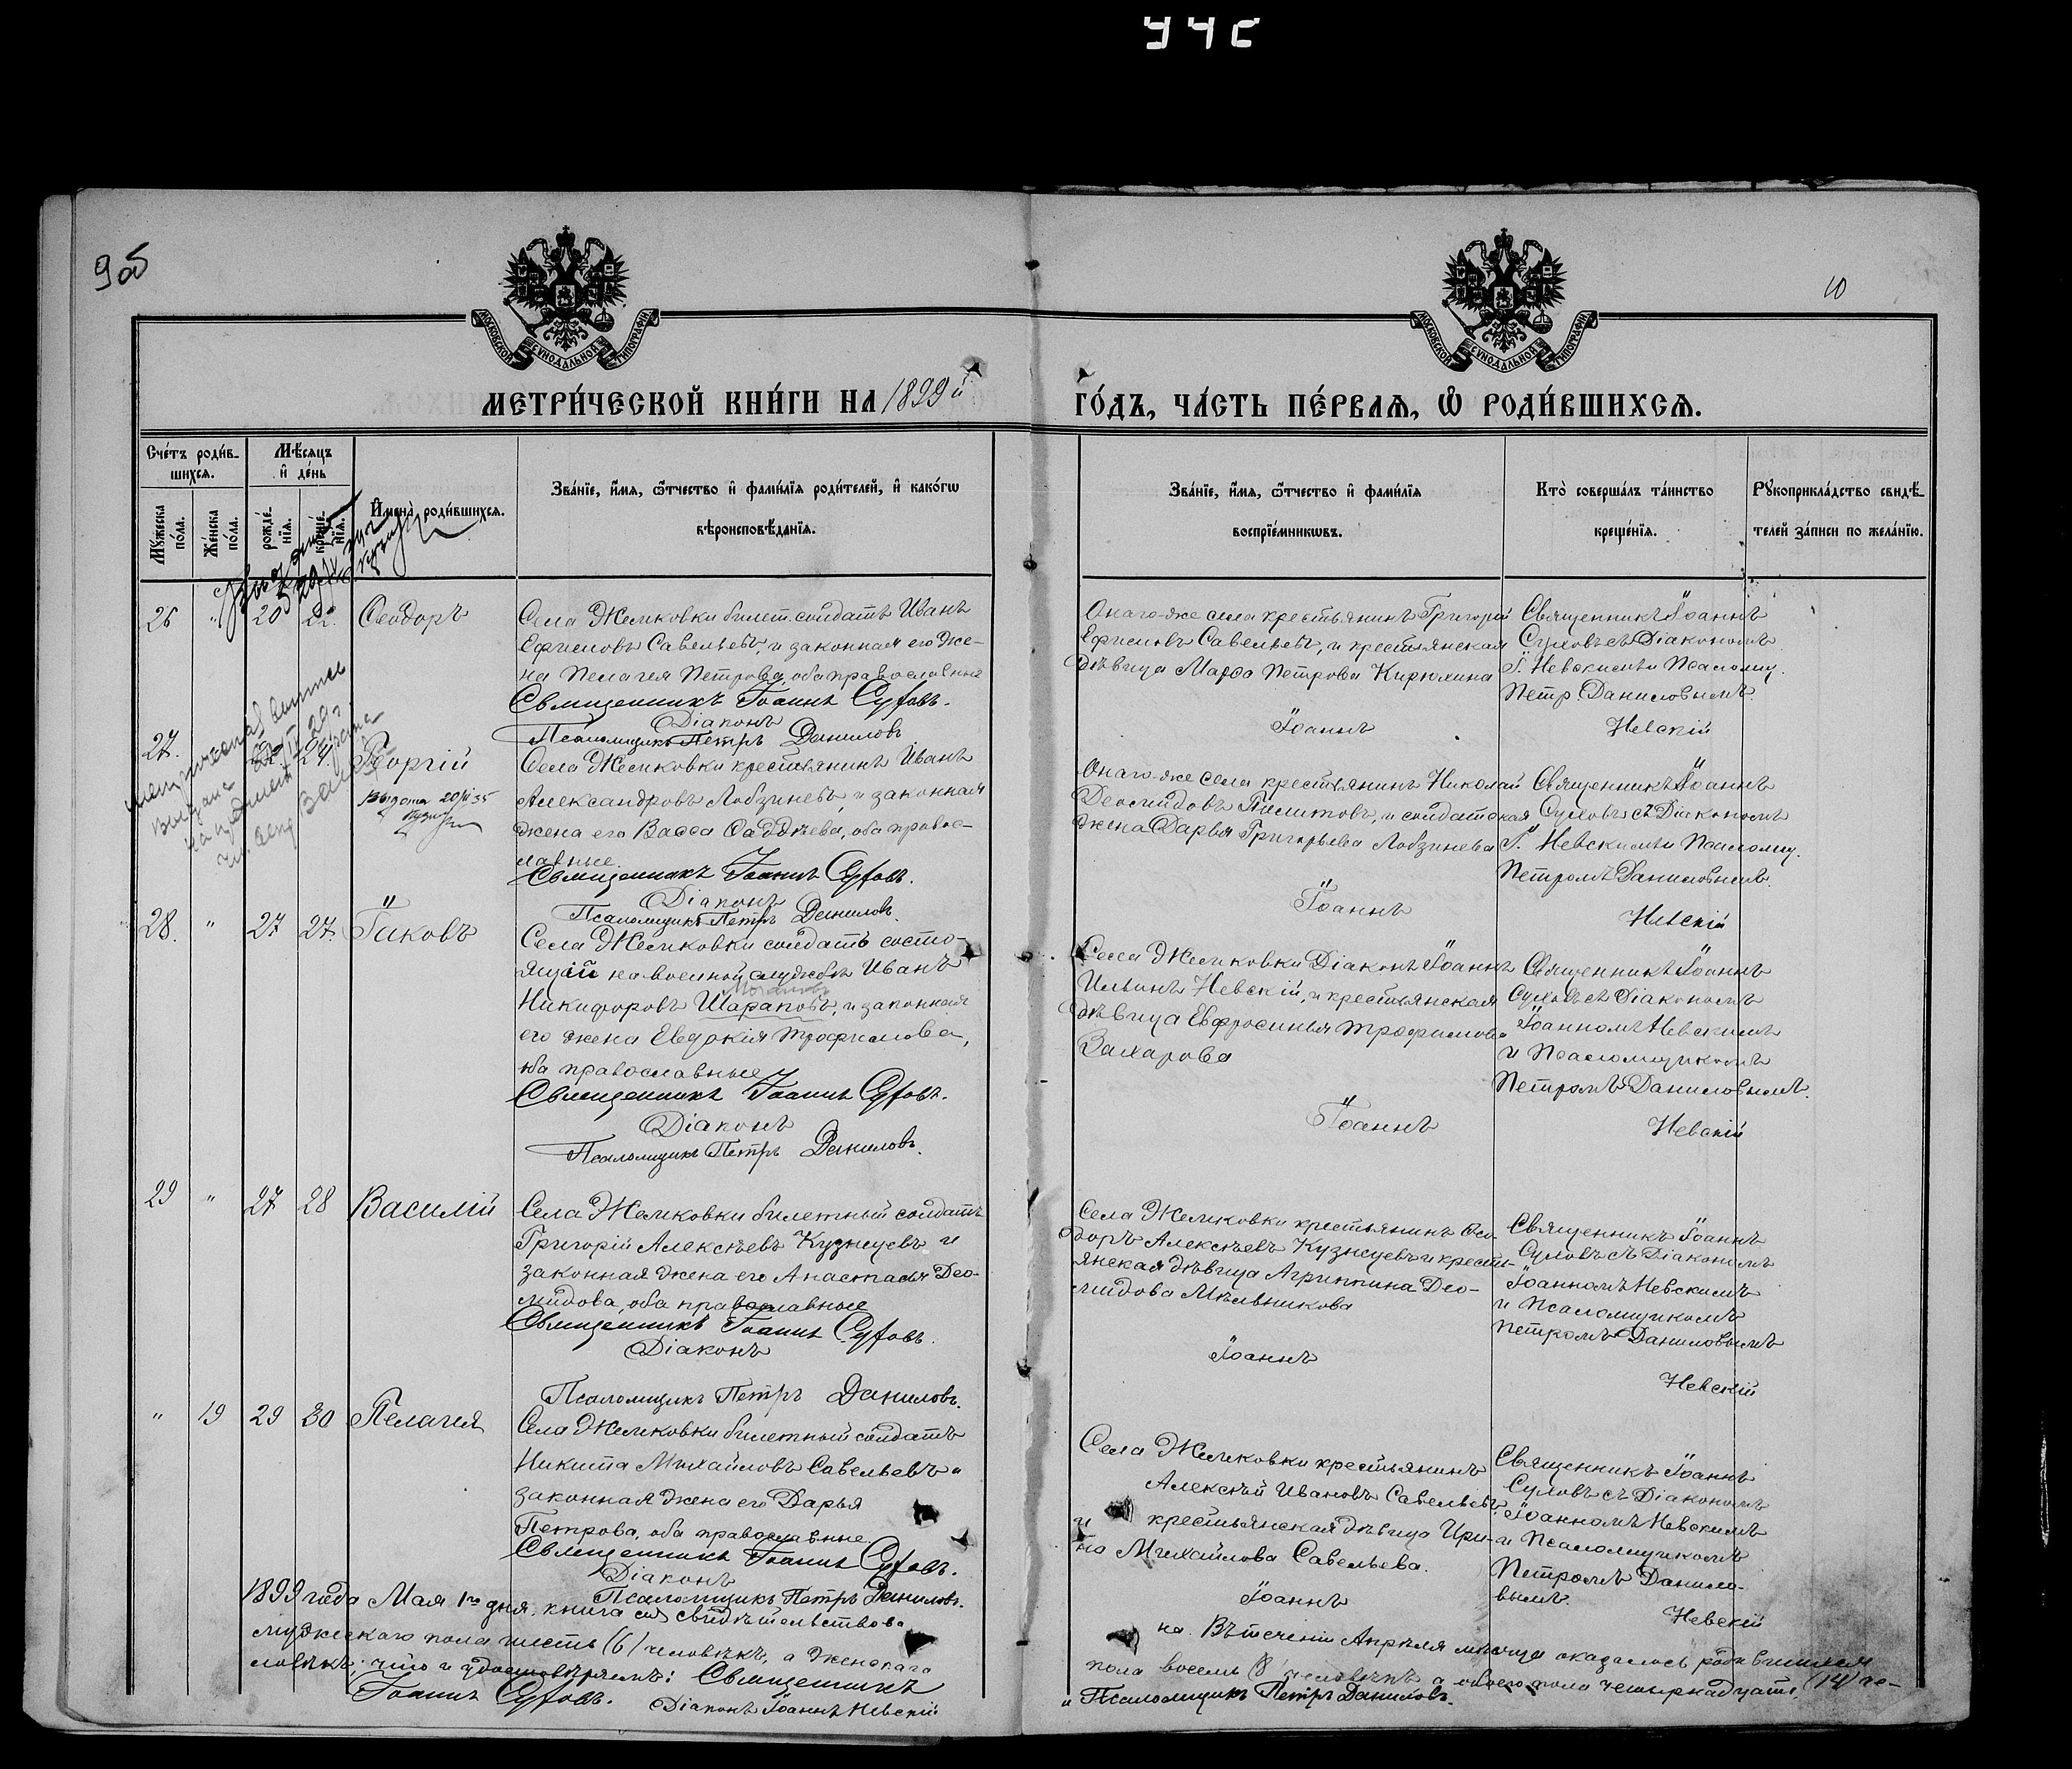 94с
9об
10
МОСКОВСКОЙ СѴНОДАЛЬНОЙ ТИПОГРАФІИ
МОСКОВСКОЙ СѴНОДАЛЬНОЙ ТИПОГРАФІИ
МЕТРИ́ЧЕСКОЙ КНИ́ГИ НА 1899й ГО́ДЪ, ЧА́СТЬ ПЕ́РВАѦ, Ѽ РОДИ́ВШИХСѦ.
Счéтъ роди́в-
шихсѧ.
Мѣ́сяцъ
и҆ де́нь
Мꙋ́жеска
по́ла.
Же́нска
по́ла.
рожде́-
нїѧ.
креще́-
нїѧ.
И҆мена̀ роди́вшихсѧ.
Зва́нїе, и҆́мѧ, ѻ҆́тчество и҆ фами́лїѧ роди́телей, и҆ како́гѡ
вѣроисповѣ́данїѧ.
Зва́нїе, и҆́мѧ, ѻ҆́тчество и҆ фами́лїѧ
воспрїе́мникѡвъ.
Кто̀ соверша́лъ та́инство
креще́нїѧ.
Рꙋкоприкла́дство свидѣ́-
телей за́писи по жела́нїю.
26 " 20 22. Ѳеодоръ
Села Жемковки билет. солдатъ Иванъ
Ефимовъ Савельевъ, и законная его же-
на Пелагея Петрова, оба православные
Священникъ Іоаннъ Суловъ.
Діаконъ
Псаломщикъ Петръ Даниловъ
Онаго-же села крестьянинъ Григорій
Ефимовъ Савельевъ, и крестьянская
дѣвица Марѳа Петрова Кирюхина
Іоаннъ
Священникъ Іоаннъ
Суловъ съ Діакономъ
І. Невскимъ и Псаломщ.
Петр. Даниловымъ.
Невскій
27. 22. 24. Георгій
Выдана 20/II 35
Метрическая выпись
выдана
Села Жемковки крестьянинъ Иванъ
Александровъ Лобзиневъ, и законная
жена его Васса Фаддѣева, оба правос-
лавные.
Священникъ Іоаннъ Суловъ.
Діаконъ
Псаломщикъ Петръ Даниловъ.
Онаго-же села крестьянинъ Николай
Деомидовъ, и солдатская
жена Дарья Григорьева Лобзинева
Іоаннъ
Священникъ Іоаннъ
Суловъ съ Діакономъ
І. Невскимъ и Псаломщ.
Петромъ Даниловымъ.
Невскій
28. " 27 27. Іаковъ
Села Жемковки солдатъ состо-
ящій на военной службѣ Иванъ
Никифоровъ Шараповъ, и законная
его жена Евдокія Трофимова,
оба православные
Священникъ Іоаннъ Суловъ.
Діаконъ
Псаломщикъ Петръ Даниловъ.
Села Жемковки Діаконъ Іоаннъ
Ильинъ Невскій, и крестьянская
дѣвица Евфросинья Трофимова
Захарова
Іоаннъ
Священникъ Іоаннъ
Суловъ съ Діакономъ
Іоанномъ Невскимъ
и Псаломщикомъ
Петромъ Даниловымъ.
Невскій
29 " 27 28 Василій
Села Жемковки билетный солдатъ
Григорій Алексѣевъ Кузнецевъ и
законная жена его Анастасья Део-
мидова, оба православные
Священникъ Іоаннъ Суловъ.
Діаконъ
Псаломщикъ Петръ Даниловъ.
Села Жемковки крестьянинъ Ѳео-
доръ Алексѣевъ Кузнецевъ и кресть-
янская дѣвица Агриппина Део-
мидова Мельникова
Іоаннъ
Священникъ Іоаннъ
Суловъ съ Діакономъ
Іоанномъ Невскимъ
и Псаломщикомъ
Петромъ Даниловымъ
Невскій
" 19 29 30 Пелагея
Села Жемковки билетный солдатъ
Никита Михайловъ Савельевъ и
законная жена его Дарья
Петрова, оба православные
Священникъ Іоаннъ Суловъ.
Діаконъ
Псаломщикъ Петръ Даниловъ.
Села Жемковки крестьянинъ
Алексѣй Ивановъ Савельевъ,
и крестьянская дѣвица Ири-
на Михайлова Савельева.
Іоаннъ
Священникъ Іоаннъ
Суловъ съ Діакономъ
Іоанномъ Невскимъ
и Псаломщикомъ
Петромъ Данило-
вымъ.
Невскій
1899 года Мая 1го дня, книга сія свидѣтельствова
на. Въ теченіи Апрѣля мѣсяца оказалось родившихся
мужескаго пола шесть (6) человѣкъ, а женскаго
пола восемь (8) человѣкъ а обоего пола четырнадцать (14) че-
ловѣкъ; что и удостовѣряемъ: Священникъ
Іоаннъ Суловъ. Діаконъ Іоаннъ Невскій
и Псаломщикъ Петръ Даниловъ.